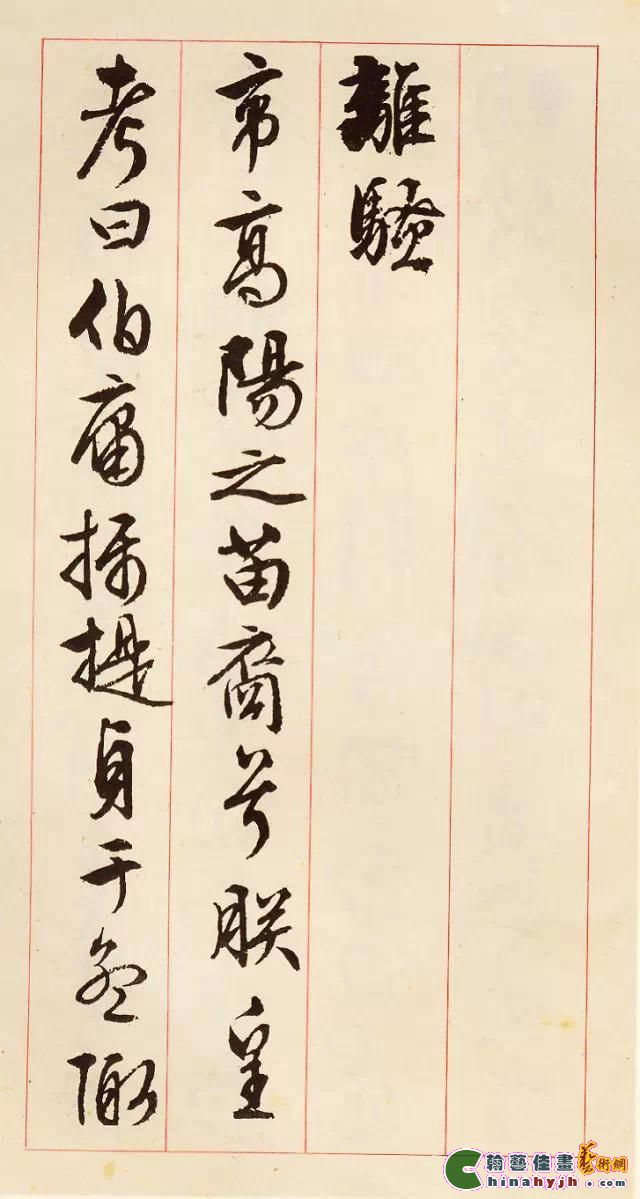 離騷
帝高陽之苗裔兮朕皇
考曰伯庸攝提貞于孟陬
翰藝佳畫藝術網
Chinahyjh.com